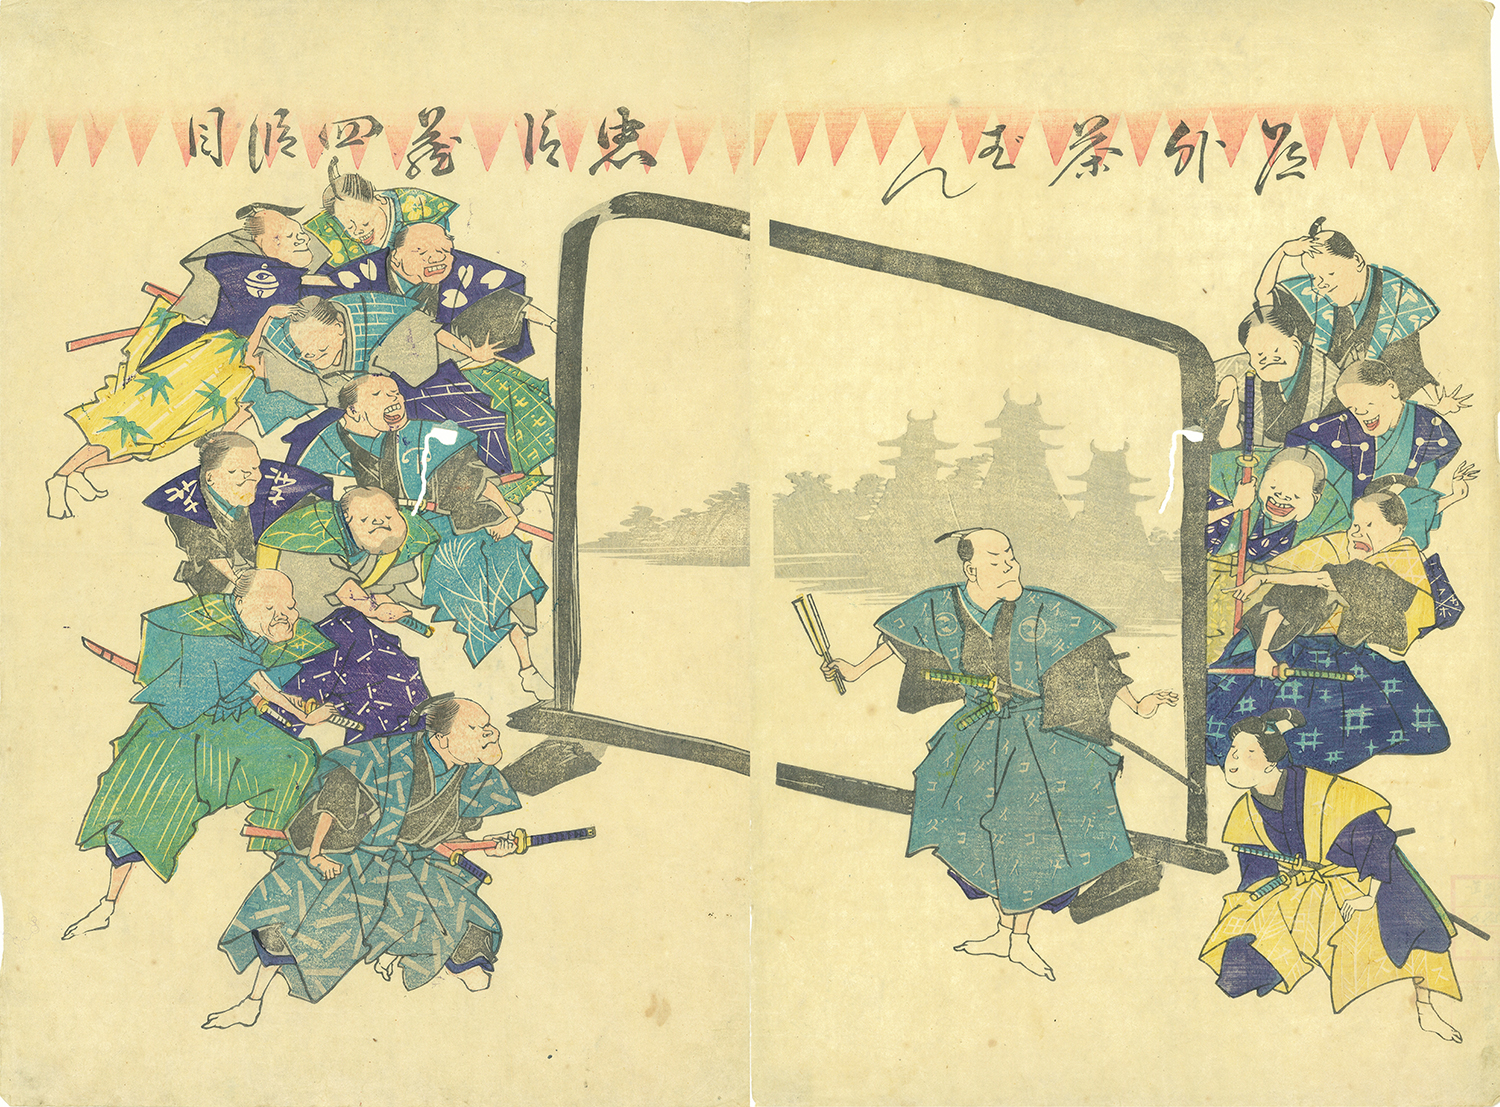 道外茶ばん
忠臣蔵四段目